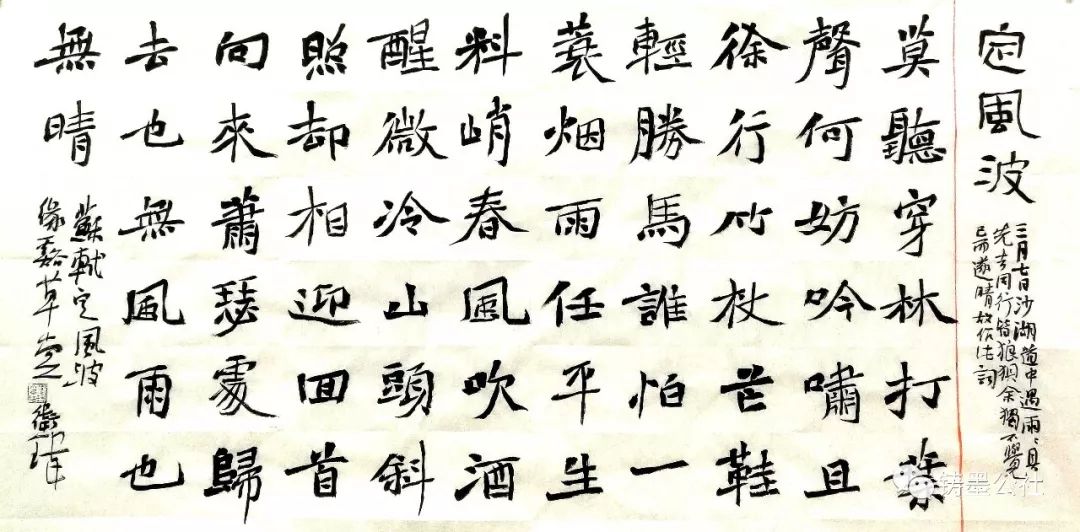 定風波
三月七日沙湖道中遇雨雨具
先去同行皆狼狽余獨不覺
已而遂晴故作此詞
莫聽穿林打葉
聲何妨吟嘯且
徐行竹杖芒鞋
輕勝馬誰怕一
蓑烟雨任平生
料峭春風吹酒
醒微冷山頭斜
照却相迎回首
向來蕭瑟處歸
去也無風雨也
無晴
蘇軾定風波
草堂
铸墨公社